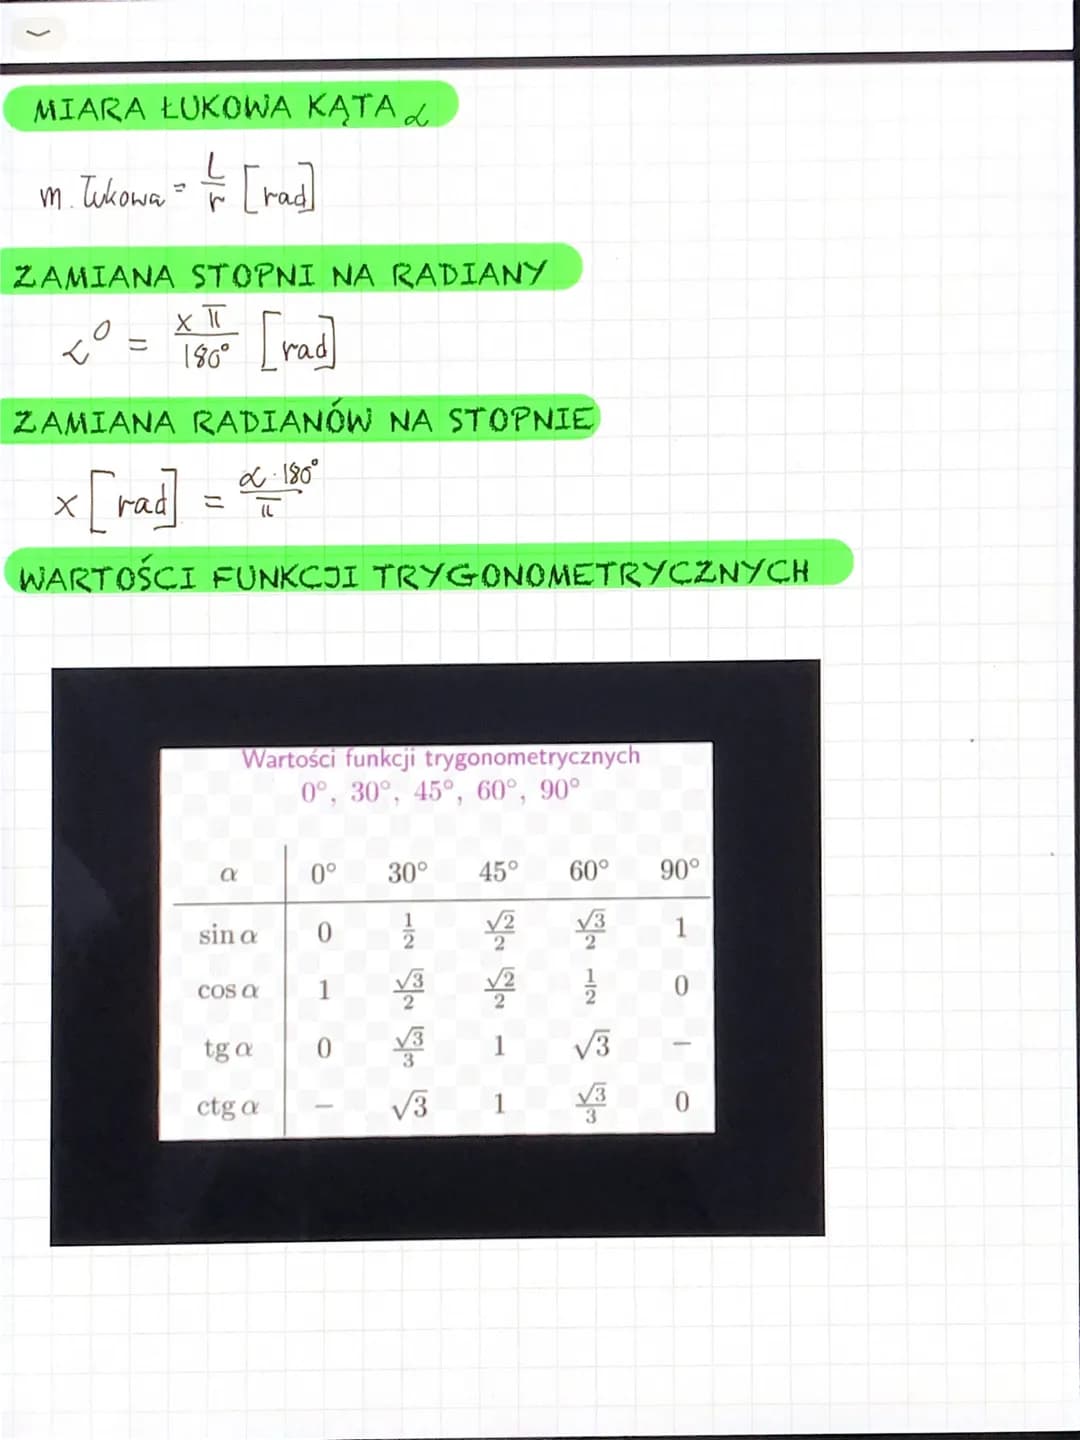 MIARA ŁUKOWA KĄTA α
m. łukowa = L/r [rad]
ZAMIANA STOPNI NA RADIANY
α° = xπ/180° [rad]
ZAMIANA RADIANÓW NA STOPNIE
x [rad] = α·180°/π
WARTOŚCI FUNKCJI TRYGONOMETRYCZNYCH
Wartości funkcji trygonometrycznych
0°, 30°, 45°, 60°, 90°
α 0° 30° 45° 60° 90°
sin α 0 1/2 √2/2 √3/2 1
cos α 1 √3/2 √2/2 1/2 0
tg α 0 √3/3 1 √3 –
ctg α – √3 1 √3/3 0